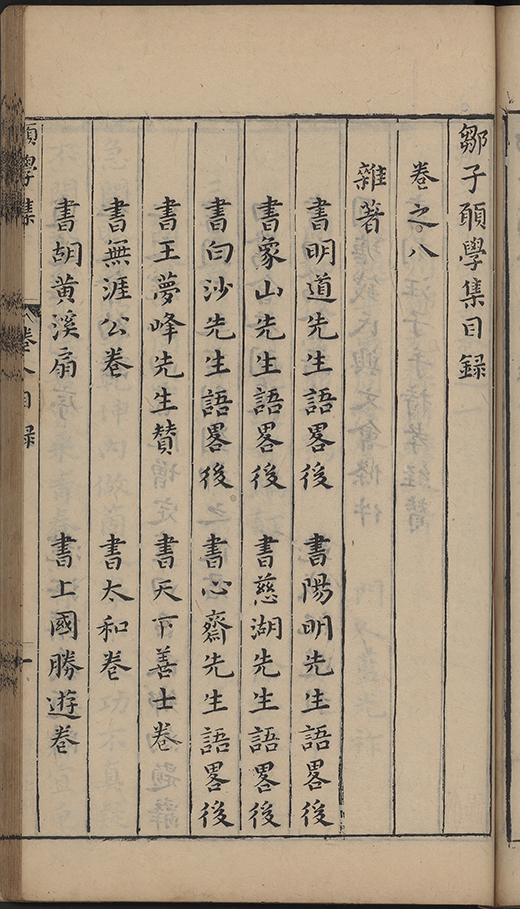 鄒子願學集目録
卷之八
雜著
書明道先生語畧後　書陽明先生語畧後
書象山先生語畧後　書慈湖先生語畧後
書白沙先生語畧後　書心齋先生語畧後
書王夢峰先生贊　書天下善士卷
書無涯公卷　書太和卷
書胡黄溪扇　書上國勝遊卷
願學集　卷八目録　一